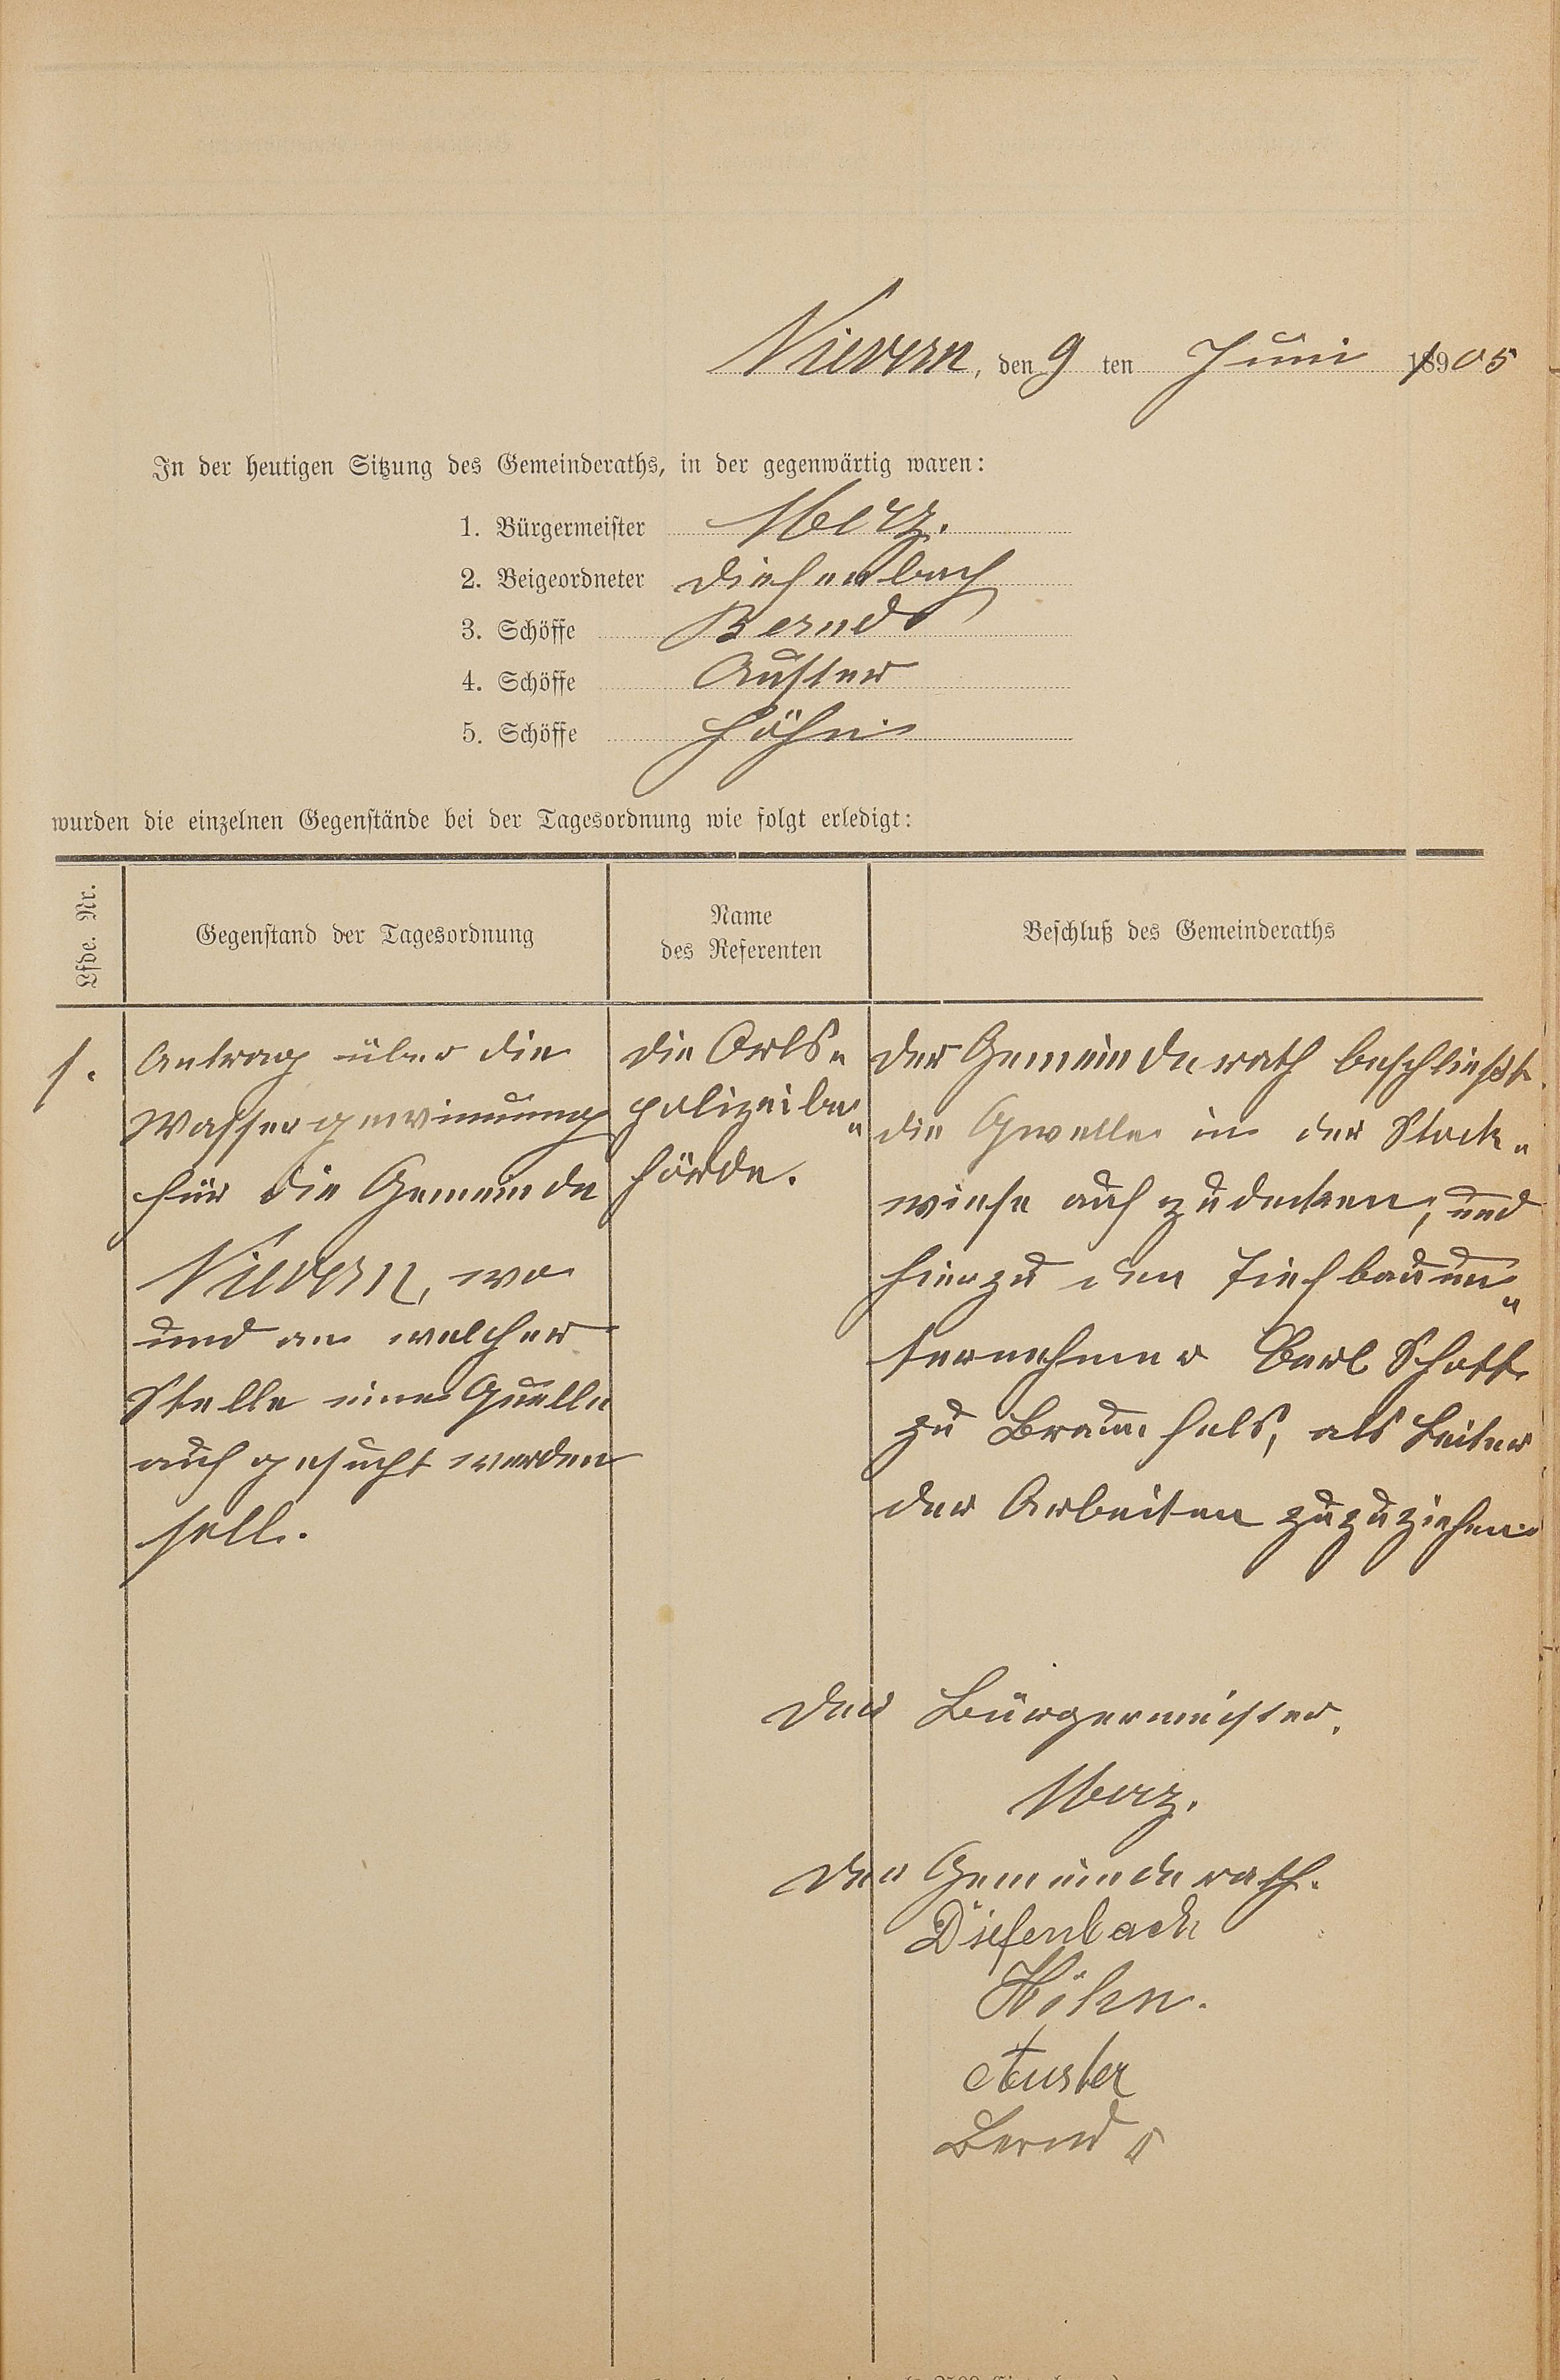 Nievern, den 9 ten Juni 18905
In der heutigen Sitzung des Gemeinderaths, in der gegenwärtig waren:
1. Bürgermeister Merz.
2. Beigeordneter Diefenbach
3. Schöffe Bernds
4. Schöffe Auster
5. Schöffe Höhn
wurden die einzelnen Gegenstände bei der Tagesordnung wie folgt erledigt:
Lfde. Nr.
Gegenstand der Tagesordnung
Name
des Referenten
Beschluß des Gemeinderaths
1.
Antrag über die
Wassergewinnung
für die Gemeinde
Nievern, wo
und an welcher
Stelle eine Quelle
auf gesucht werden
soll.
die Orts„
polizeibe„
hörde.
Der Gemeinderath beschließt
die Qwelle in der Stock„
wiese auf zu decken, und
hierzu den Tiefbauun„
ternehmer Carl Schott
zu Braunfels, als Leiter
der Arbeiten zuzuziehen
Der Bürgermeister.
Merz.
Der Gemeinderath.
Diefenbach
Höhn.
Auster
Bernds